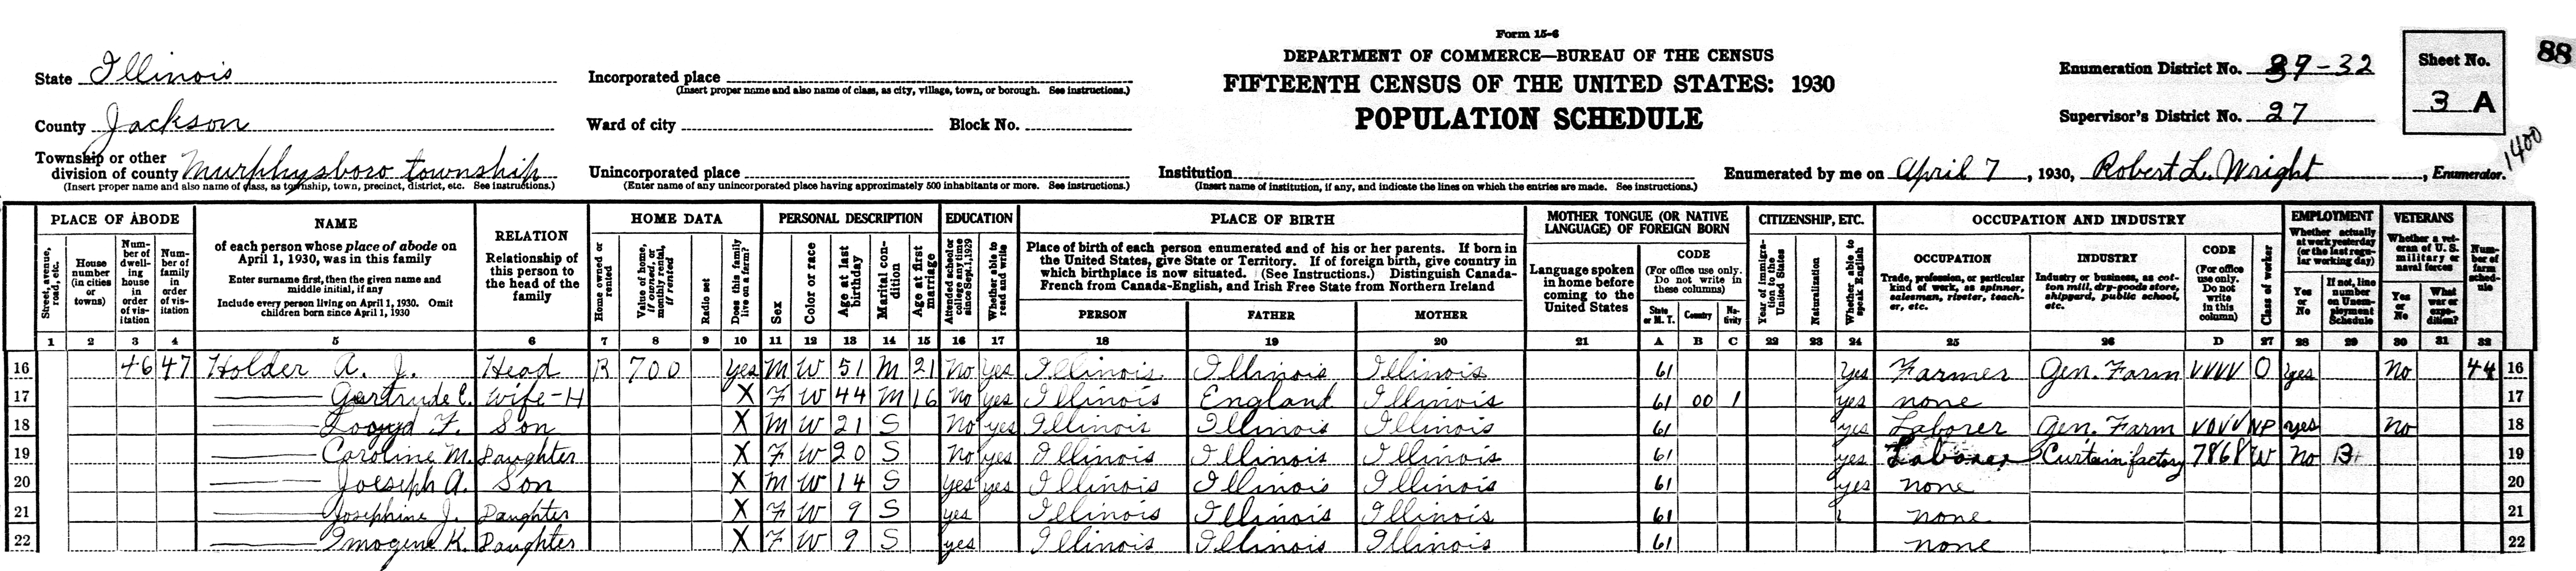 Form 15-6
DEPARTMENT OF COMMERCE—BUREAU OF THE CENSUS
FIFTEENTH CENSUS OF THE UNITED STATES: 1930
POPULATION SCHEDULE
State Illinois
County Jackson
Township or other division of county Murphysboro township
(Insert proper name and also name of class, as township, town, precinct, district, etc. See instructions.)
Incorporated place
(Insert proper name and also name of class, as city, village, town, or borough. See instructions.)
Ward of city Block No.
Unincorporated place
(Enter name of any unincorporated place having approximately 500 inhabitants or more. See instructions.)
Institution
(Insert name of institution, if any, and indicate the lines on which the entries are made. See instructions.)
Enumeration District No. 39-32
Supervisor's District No. 27
Sheet No.
3 A
88
1400
Enumerated by me on April 7, 1930, Robert L. Wright, Enumerator.
PLACE OF ABODE
Street, avenue, road, etc.
House number (in cities or towns)
Number of dwelling house in order of visitation
Number of family in order of visitation
NAME
of each person whose place of abode on April 1, 1930, was in this family
Enter surname first, then the given name and middle initial, if any
Include every person living on April 1, 1930. Omit children born since April 1, 1930
RELATION
Relationship of this person to the head of the family
HOME DATA
Home owned or rented
Value of home, if owned, or monthly rental, if rented
Radio set
Does this family live on a farm?
PERSONAL DESCRIPTION
Sex
Color or race
Age at last birthday
Marital condition
Age at first marriage
EDUCATION
Attended school or college any time since Sept. 1, 1929
Whether able to read and write
PLACE OF BIRTH
Place of birth of each person enumerated and of his or her parents. If born in the United States, give State or Territory. If of foreign birth, give country in which birthplace is now situated. (See Instructions.) Distinguish Canada-French from Canada-English, and Irish Free State from Northern Ireland
PERSON FATHER MOTHER
MOTHER TONGUE (OR NATIVE LANGUAGE) OF FOREIGN BORN
Language spoken in home before coming to the United States
CODE
(For office use only. Do not write in these columns)
State or M. T. Country Nativity
CITIZENSHIP, ETC.
Year of immigration to the United States
Naturalization
Whether able to speak English
OCCUPATION AND INDUSTRY
OCCUPATION
Trade, profession, or particular kind of work, as spinner, salesman, riveter, teacher, etc.
INDUSTRY
Industry or business, as cotton mill, dry-goods store, shipyard, public school, etc.
CODE
(For office use only. Do not write in this column)
Class of worker
EMPLOYMENT
Whether actually at work yesterday (or the last regular working day)
Yes or No
If not, line number on Unemployment Schedule
VETERANS
Whether a veteran of U. S. military or naval forces
Yes or No
What war or expedition?
Number of farm schedule
1 2 3 4 5 6 7 8 9 10 11 12 13 14 15 16 17 18 19 20 21 A B C 22 23 24 25 26 D 27 28 29 30 31 32
16 46 47 Holder A. J. Head R 700 yes M W 51 M 21 No Yes Illinois Illinois Illinois 61 Yes Farmer Gen. Farm VVVV O yes No 44 16
17 Gertrude C. Wife-H X F W 44 M 16 No yes Illinois England Illinois 61 00 1 yes none 17
18 Looyd F. Son X M W 21 S No yes Illinois Illinois Illinois 61 yes Laborer Gen. Farm VOVV NP yes No 18
19 Caroline M. Daughter X F W 20 S No yes Illinois Illinois Illinois 61 yes Laborer Curtain factory 7868 W No 19
20 Joeseph A. Son X M W 14 S yes yes Illinois Illinois Illinois 61 yes none 20
21 Josephine J. Daughter X F W 9 S yes Illinois Illinois Illinois 61 none 21
22 Imogene K. Daughter X F W 9 S yes Illinois Illinois Illinois 61 none 22